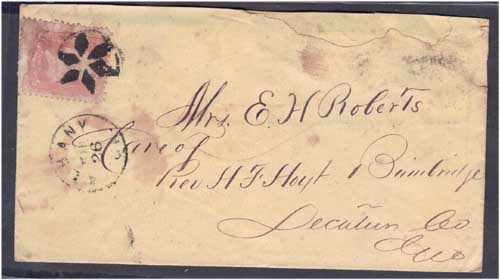 Mrs. E. H Roberts
Care of
Rev H F Hoyt Bainbridge
Decatur Co
Geo
ALBANY
26